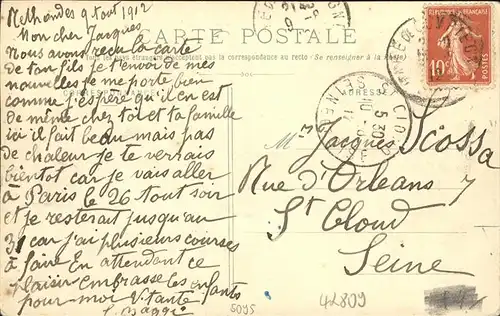 Rethondes 9 Aout 1912
Mon cher Jacques
Nous avons reçu la carte
de ton fils je t'envoi de mes
nouvelles je me porte bien
comme j'espère qu'il en est
de même chez toi et ta famille
ici il fait beau mais pas
de chaleur je te verrais
bientot car je vais aller
à Paris le 26 tout soir
et je resterait jusqu'au
31 car j'ai plusieurs courses
à faire En attendant ce
plaisir embrasse les enfants
pour moi Vitante
CARTE POSTALE
Tous les pays étrangers n'acceptent pas la correspondance au recto. (Se renseigner à la Poste)
CORRESPONDANCE
ADRESSE
10c
POSTES
S! CLOUD
5 30
M. Jacques Scossa
Rue d'Orleans 7
St Cloud
Seine
5095
42809